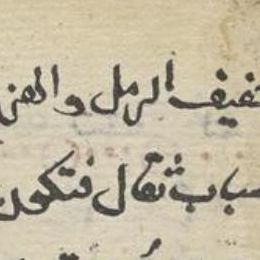 خفيف الرمل والهز
سباب ثقال فتكون